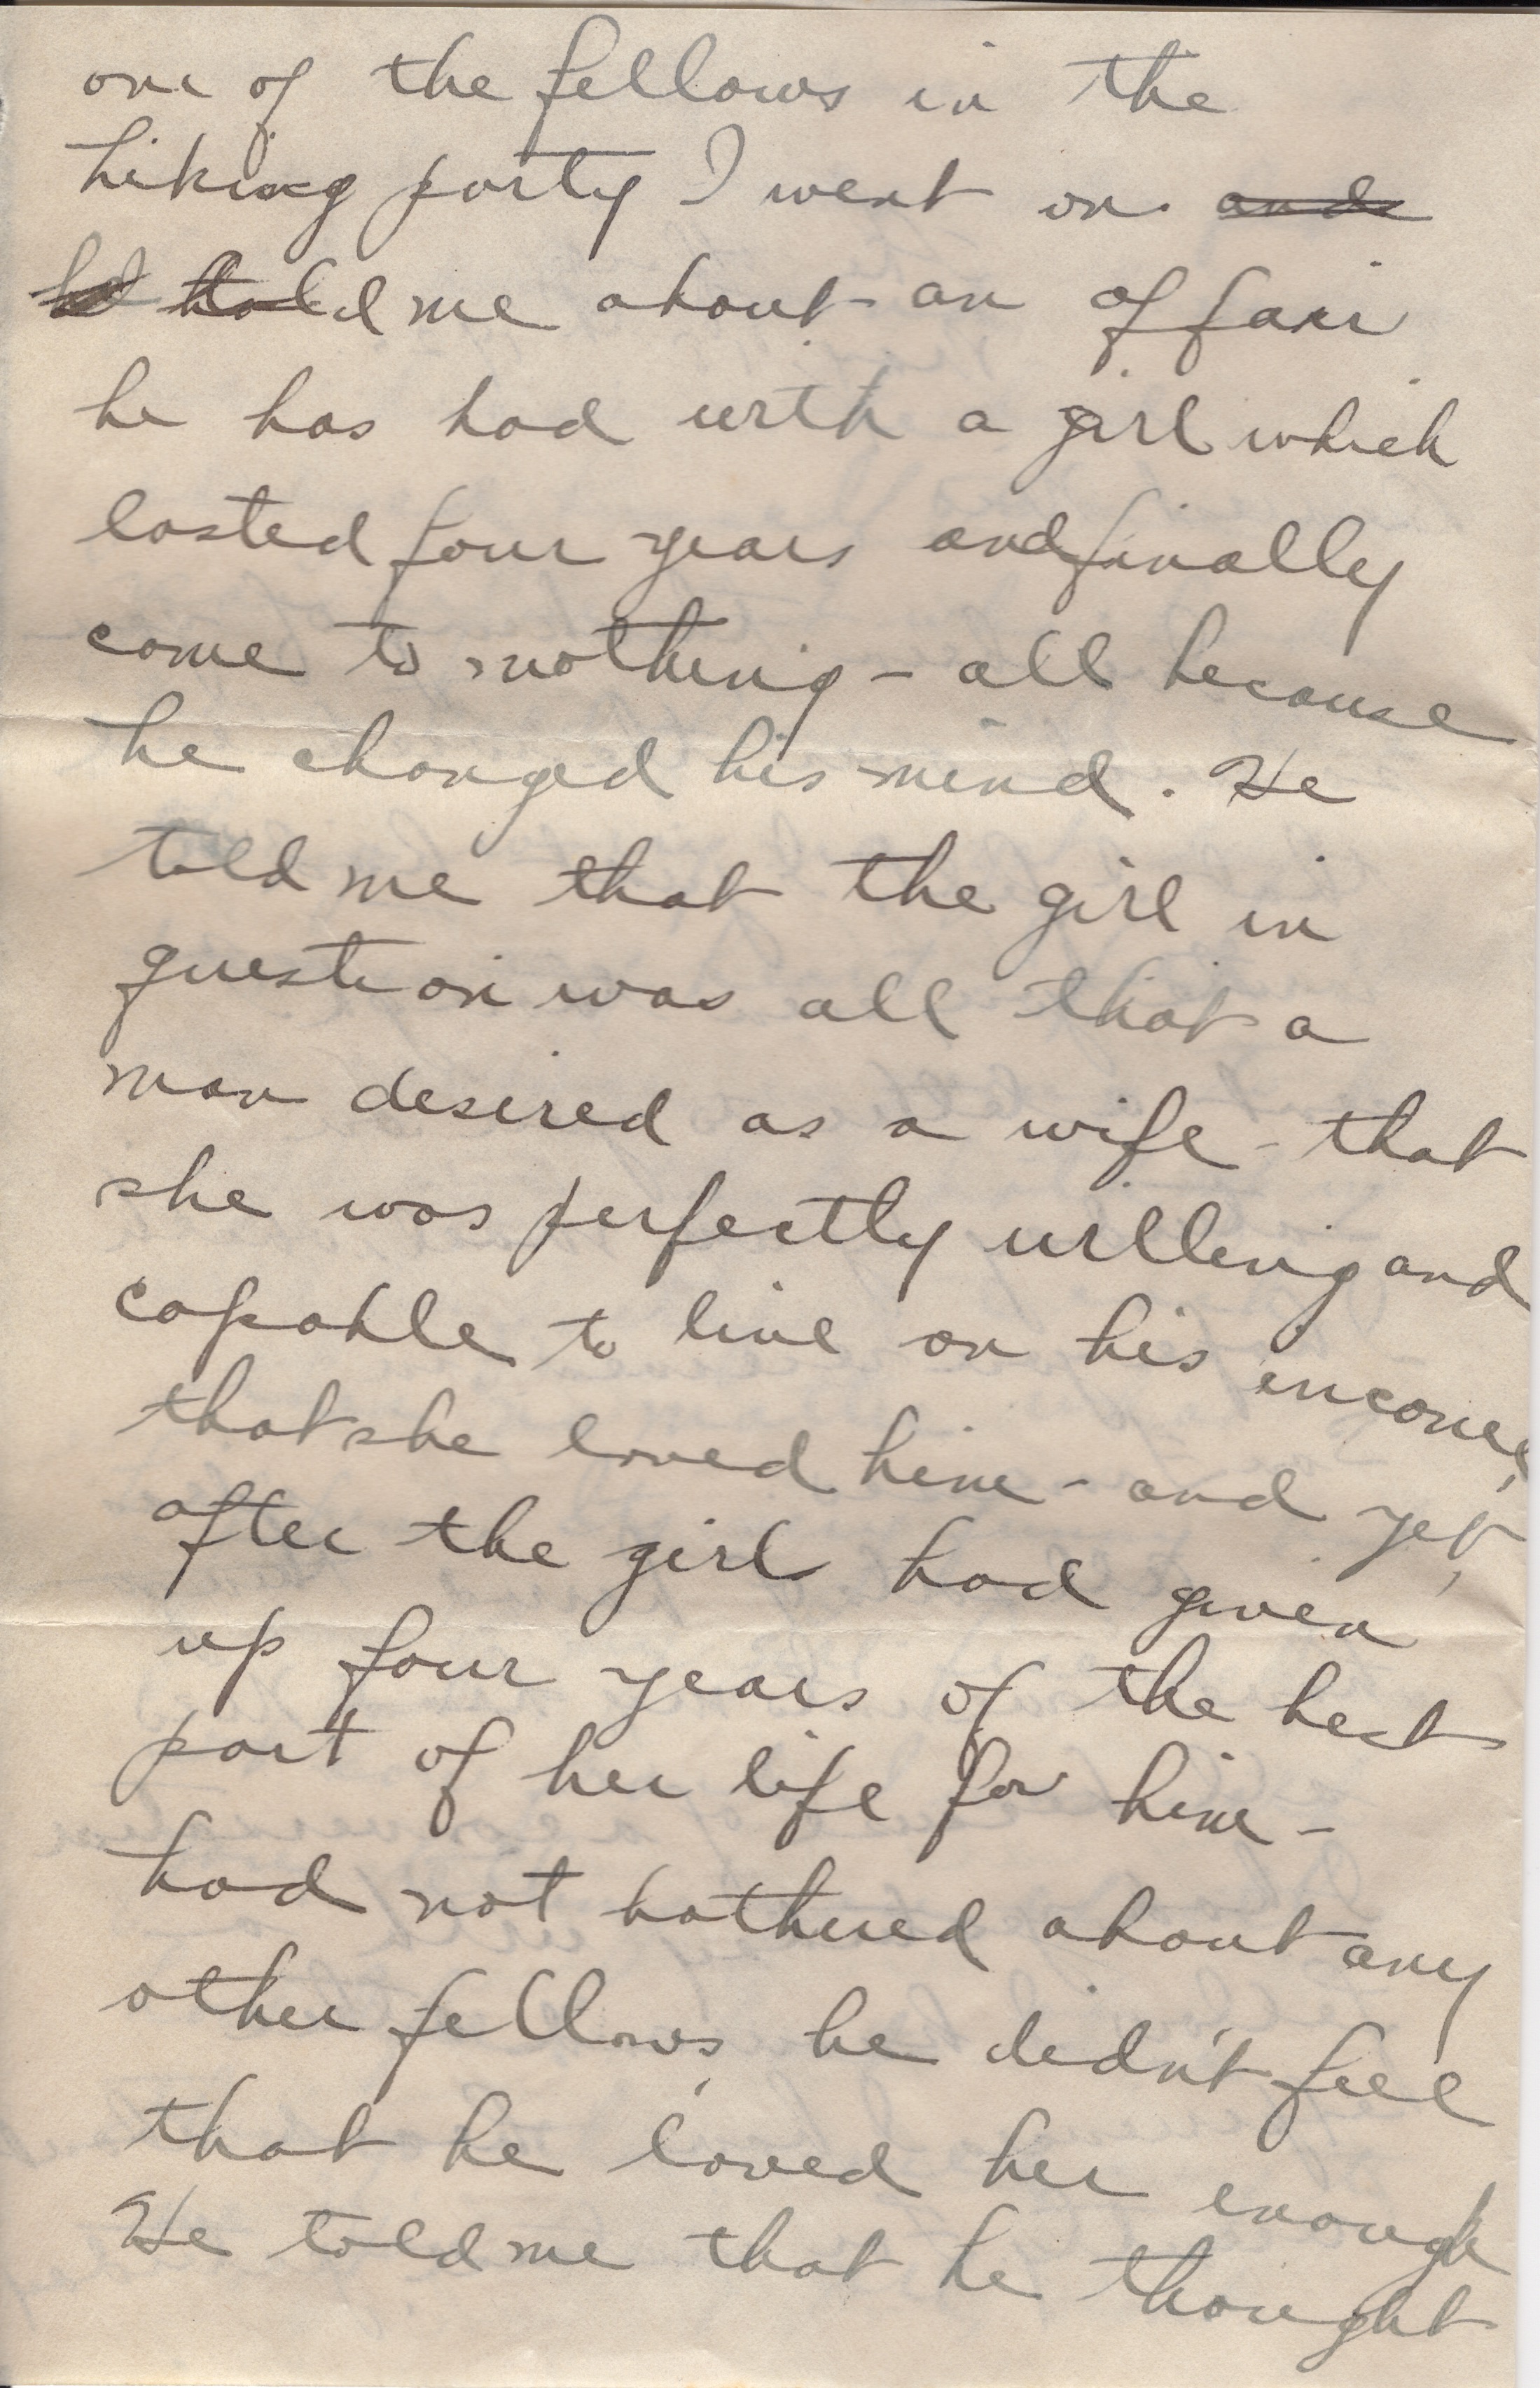 one of the fellows in the
hiking party I went on and
he told me about an affair
he has had with a girl which
lasted four years and finally
come to nothing - all because
he changed his mind. He
told me that the girl in
question was all that a
man desired as a wife - that
she was perfectly willing and
capable to live on his income,
that she loved him - and yet,
after the girl had given
up four years of the best
part of her life for him -
had not bothered about any
other fellows, he didn't feel
that he loved her enough
He told me that he thought